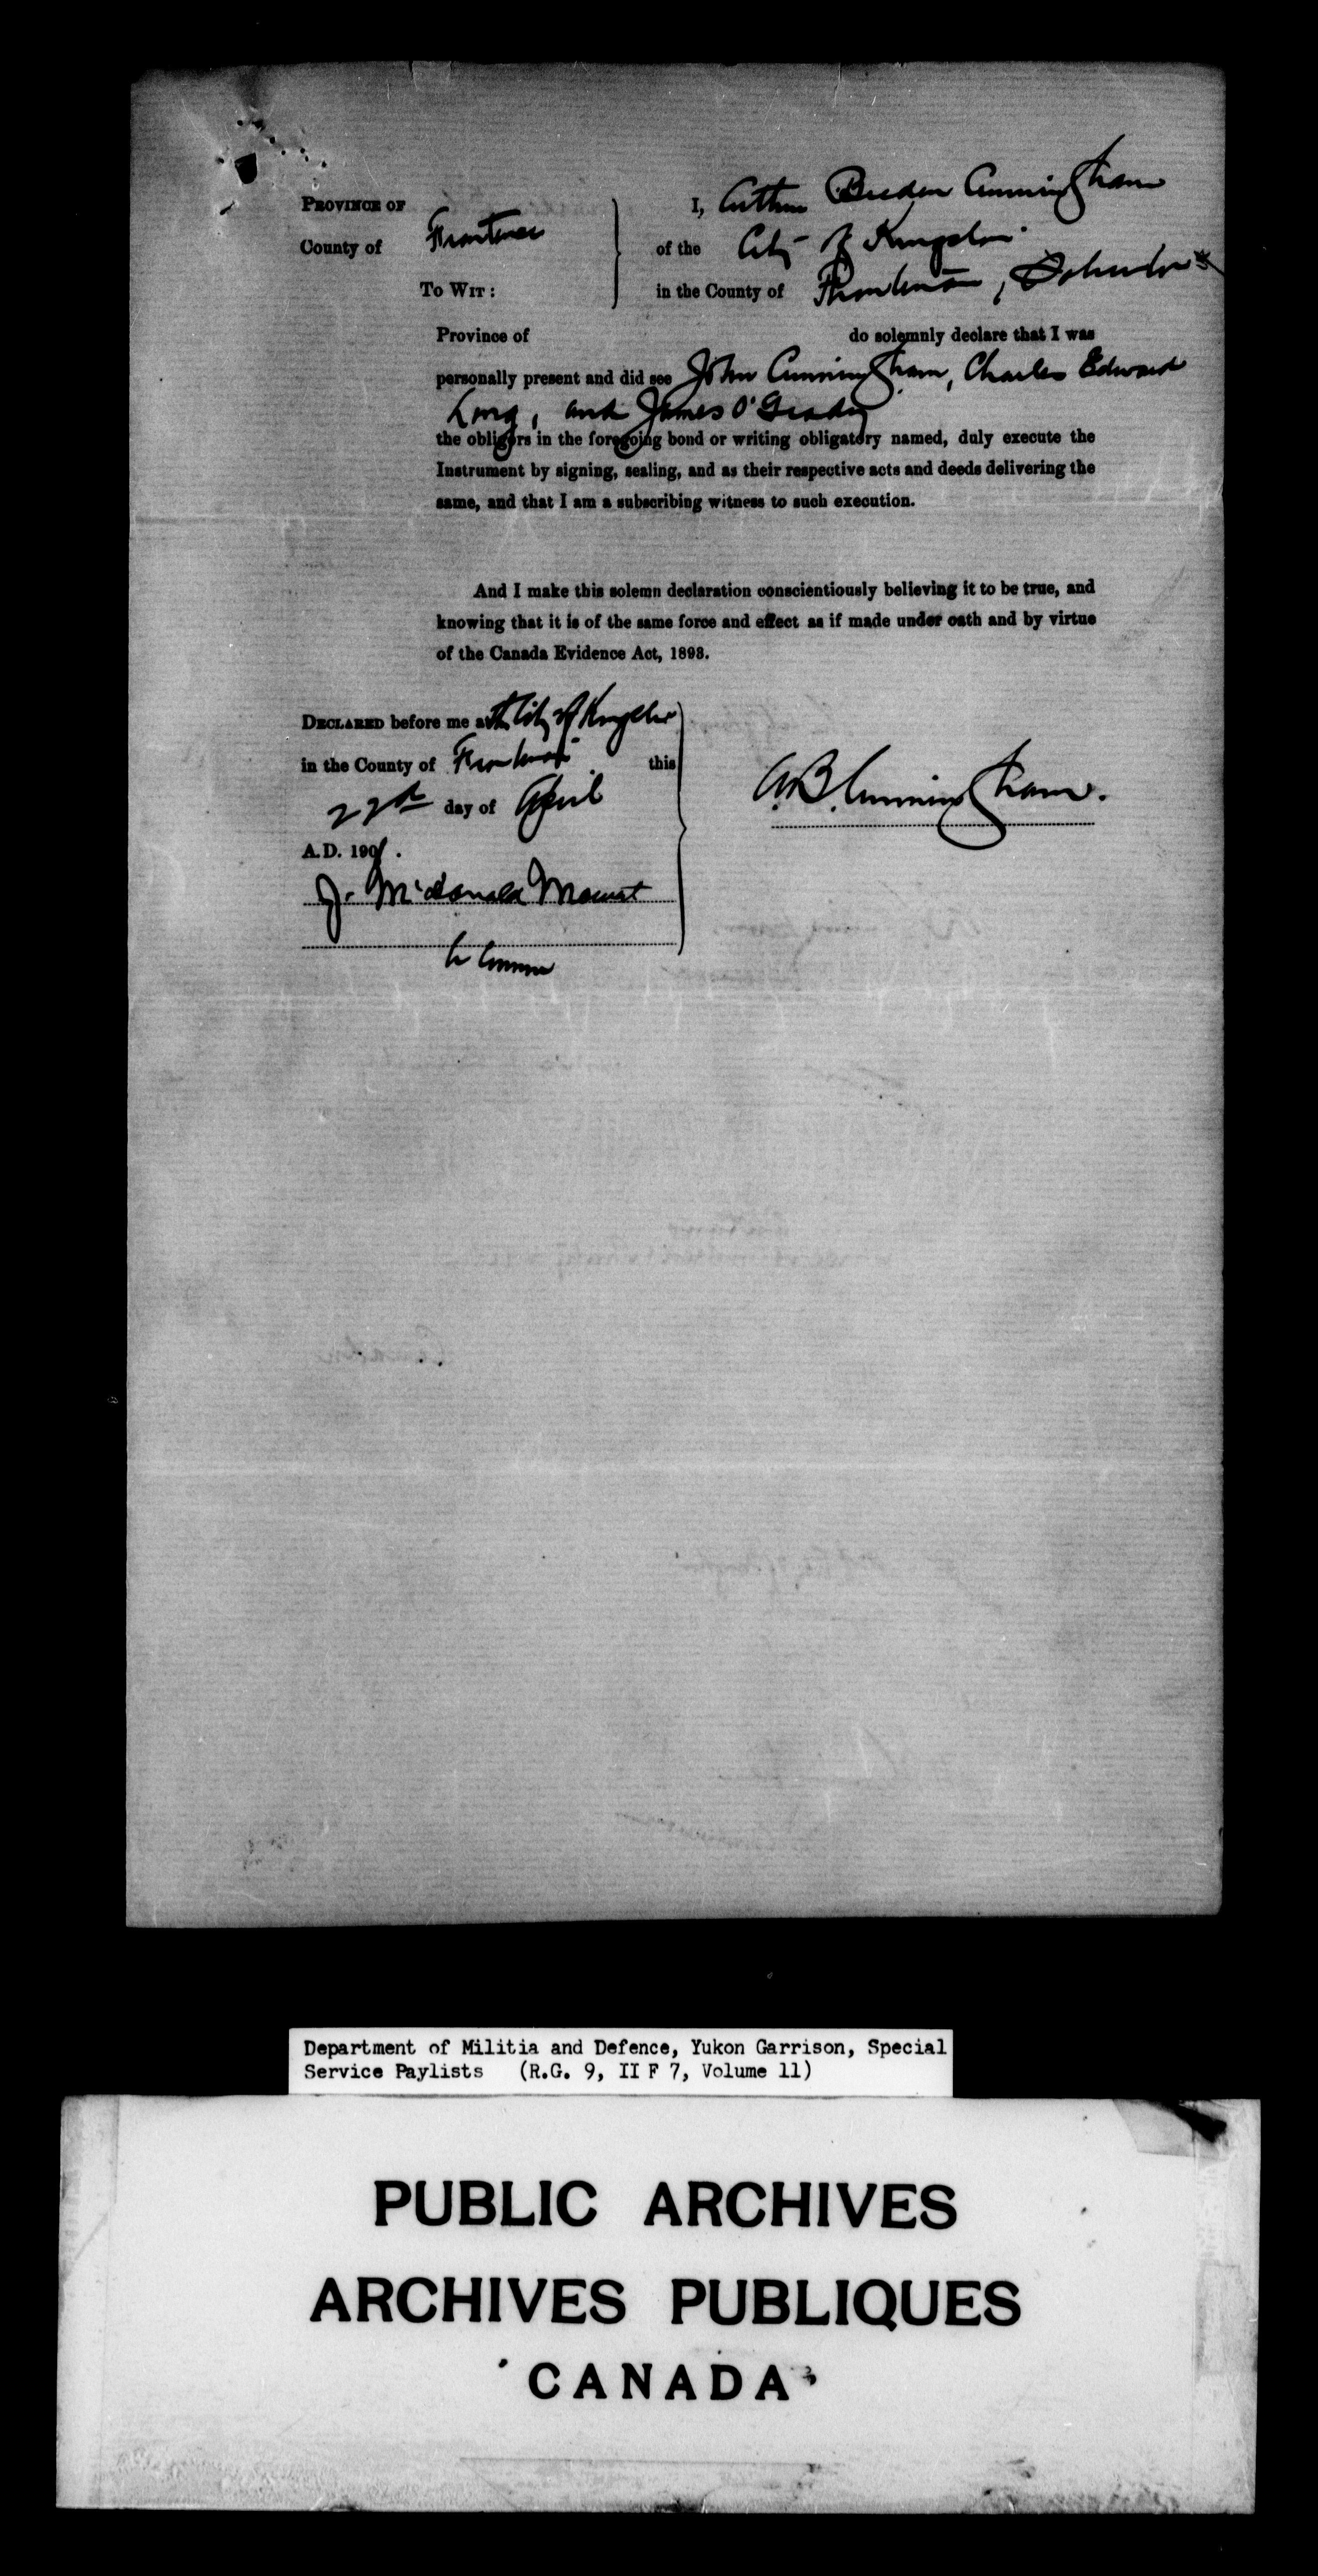 PROVINCE OF
County of Frontenac
TO WIT:
I, Arthur Breden Cunningham
of the City of Kingston
in the County of Frontenac, Solicitor
Province of do solemnly declare that I was
personally present and did see John Cunningham, Charles Edward
Long, and James O'Grady
the obligors in the foregoing bond or writing obligatory named, duly execute the
Instrument by signing, sealing, and as their respective acts and deeds delivering the
same, and that I am a subscribing witness to such execution.
And I make this solemn declaration conscientiously believing it to be true, and
knowing that it is of the same force and effect as if made under oath and by virtue
of the Canada Evidence Act, 1893.
DECLARED before me at the City of Kingston
in the County of Frontenac this
day of April
A.D. 1901.
J. McDonald Mowat
A.B. Cunningham.
Department of Militia and Defence, Yukon Garrison, Special
Service Paylists (R.G. 9, II F 7, Volume 11)
PUBLIC ARCHIVES
ARCHIVES PUBLIQUES
CANADA